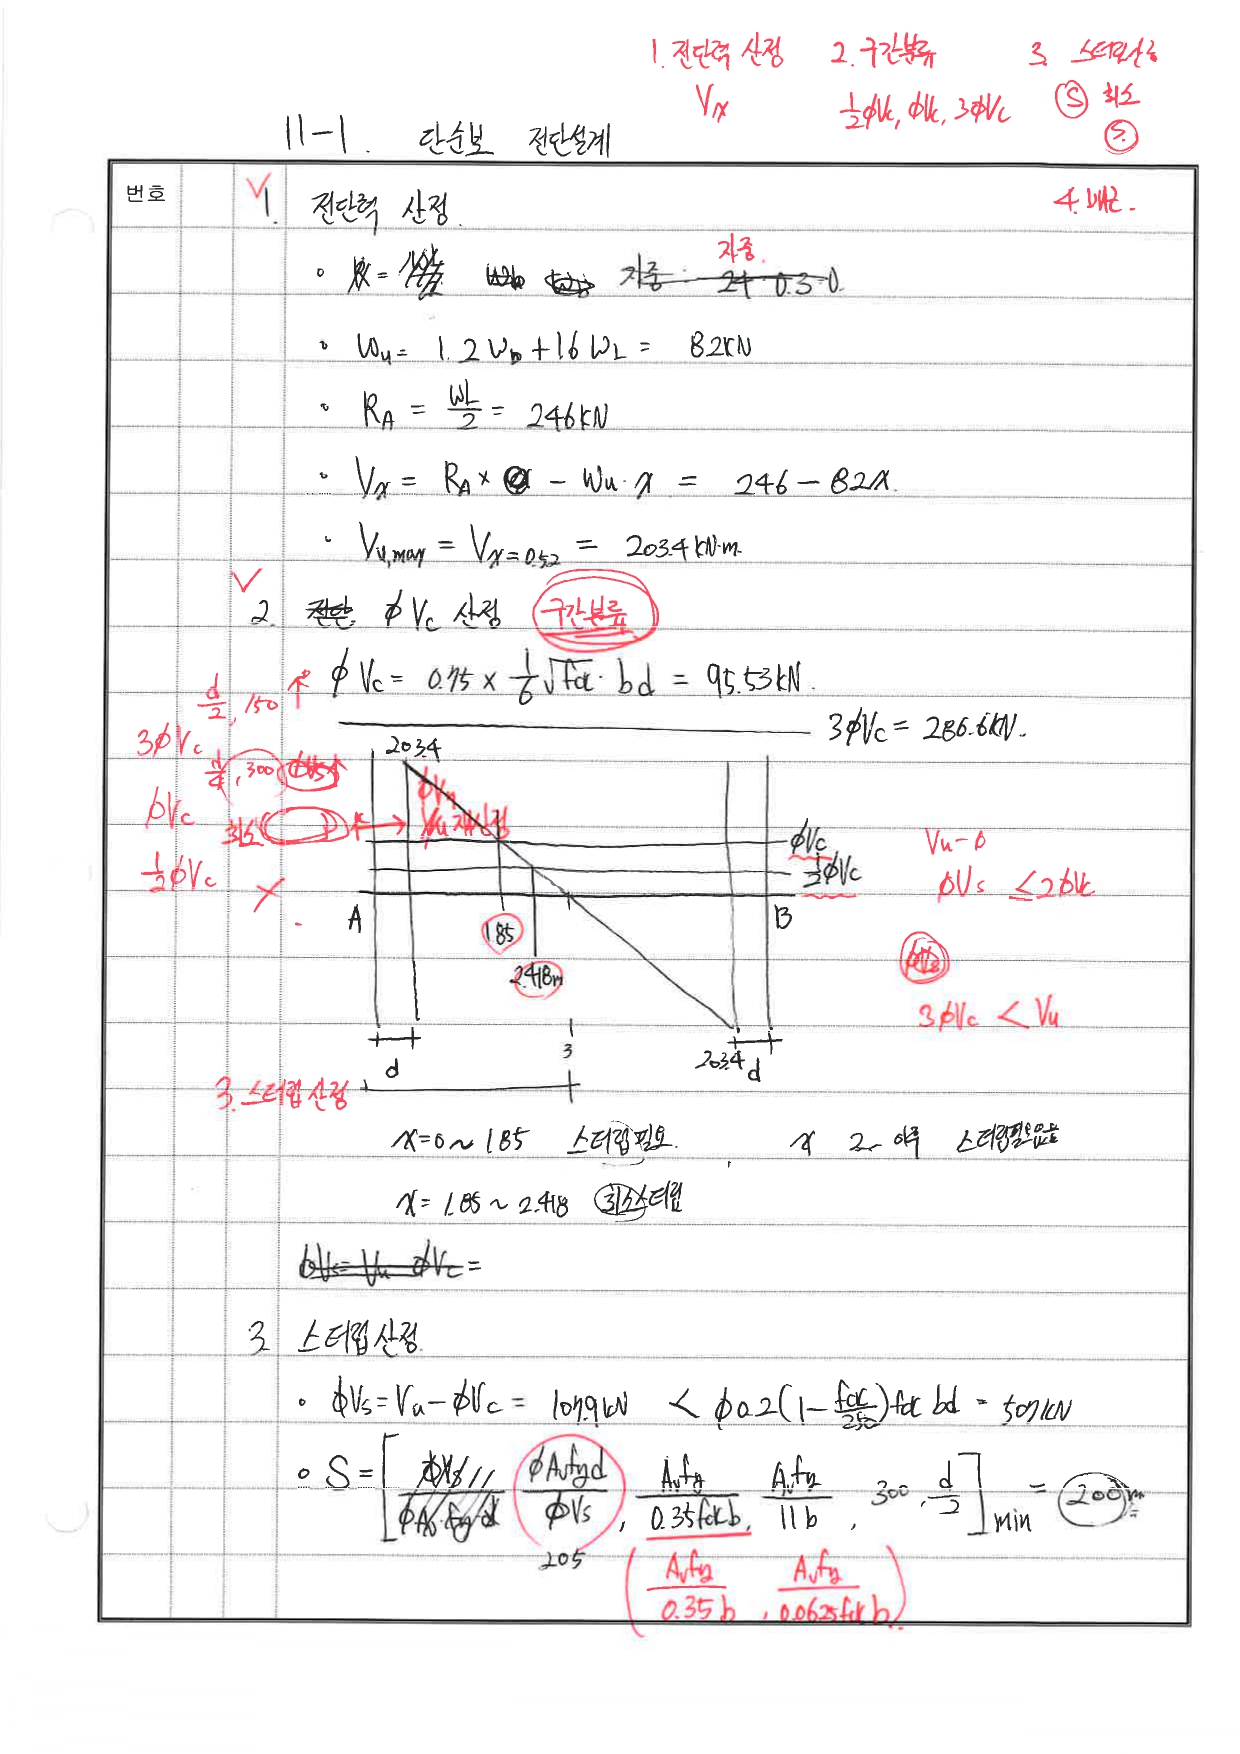 1. 전단력 산정 2. 구간분류 3. 스터럽산정
Vx ½φVc, φVc, 3φVc Ⓢ 최소
S.
11-1. 단순보 전단설계
번호 ✓ 1. 전단력 산정. 4. 배근.
자중.
자중 24 0.3 0.
• Wu = 1.2 WD + 1.6 WL = 82KN
• RA = WL/2 = 246KN
• Vx = RA × - Wu · x = 246 - 82x.
• Vu,max = Vx=0.52 = 203.4 KN·m.
✓ 2. 전단 φVc 산정 구간분류
φVc = 0.75 × 1/6 √fck · bd = 95.53KN.
d/2, 150 ↑
3φVc = 286.6KN.
3φVc
203.4
d/4, 300, φVs
φVn
φVc
최소
Vu 재산정
φVc
Vu-φ
½φVc
½φVc
φVs ≤ 2φVc
A
B
1.85
2.418m
φVs
3φVc < Vu
3
203.4
d
d
3. 스터럽 산정
x=0~1.85 스터럽 필요. x 2~ 이후 스터럽필요없음
x=1.85~2.418 최소스터럽
φVs = Vu φVc =
3. 스터럽 산정.
• φVs = Vu - φVc = 107.9KN < φ0.2(1 - fck/250) fck bd = 507KN
• S = [ φVs / φAv fy d φAvfyd/φVs , Avfy/0.35fckb , Avfy/11b , 300, d/2 ]min = 200m
205
( Avfy/0.35b , Avfy/0.0625fckb )